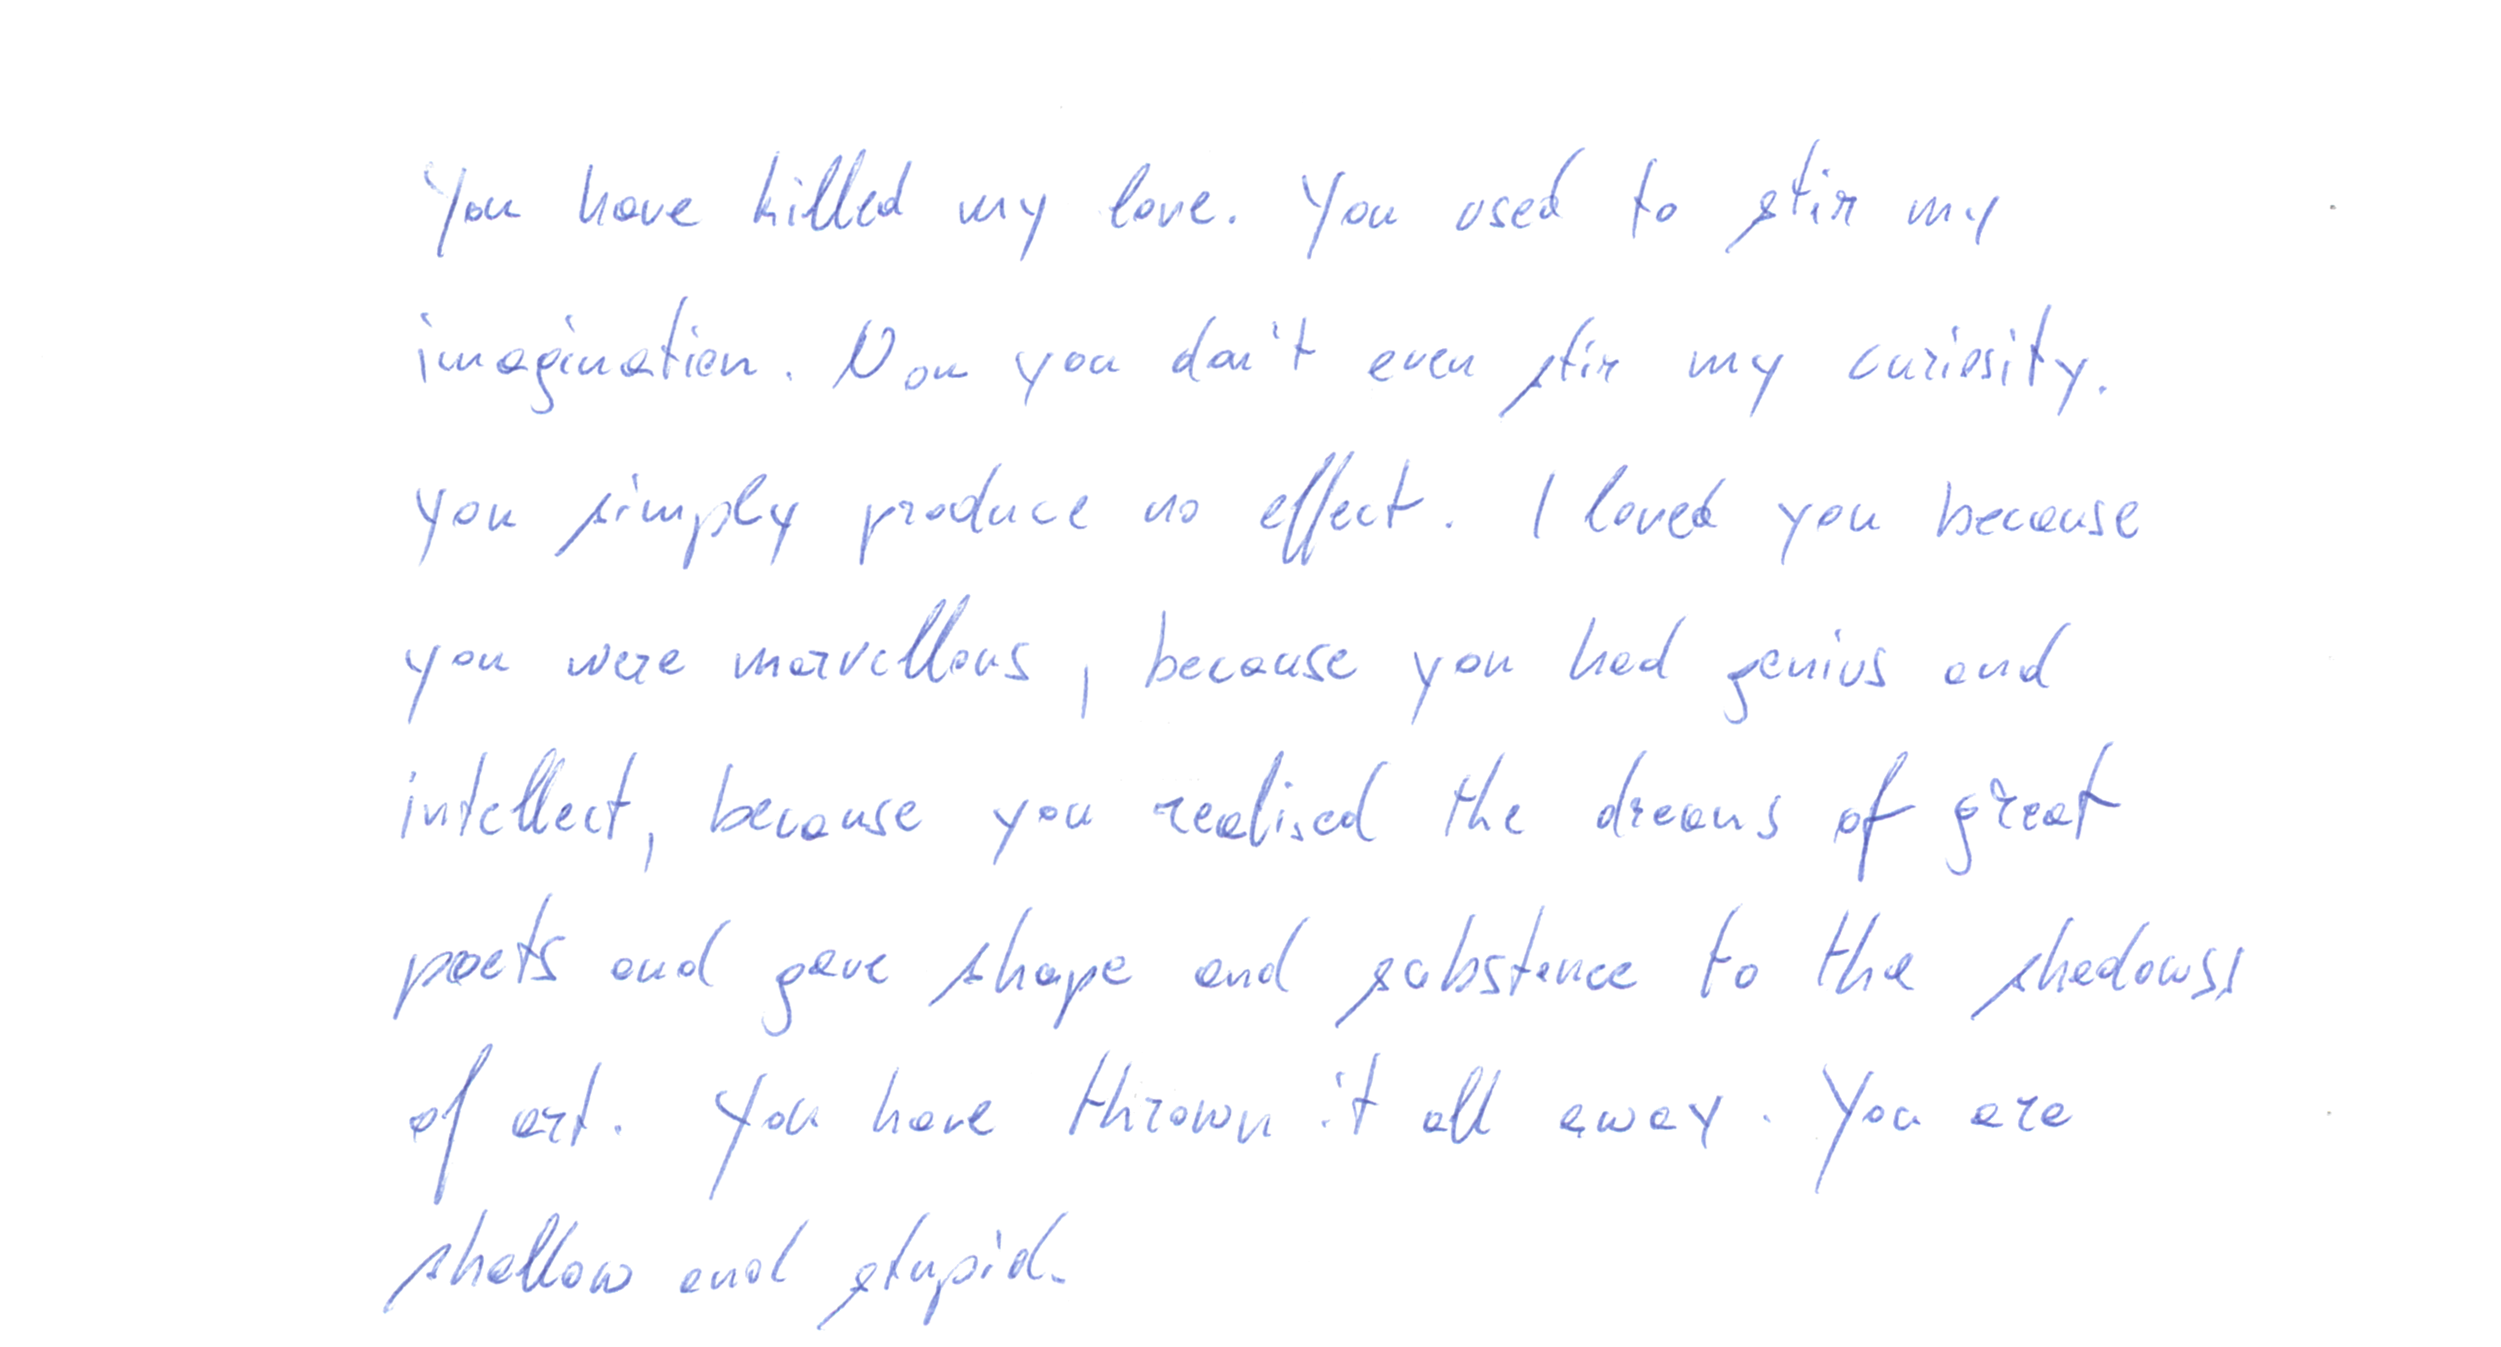 You have killed my love. You used to stir my
imagination. Now you don't even stir my curiosity.
You simply produce no effect. I loved you because
you were marvellous, because you had genius and
intellect, because you realised the dreams of great
poets and gave shape and substance to the shadows
of art. You have thrown it all away. You are
shallow and stupid.